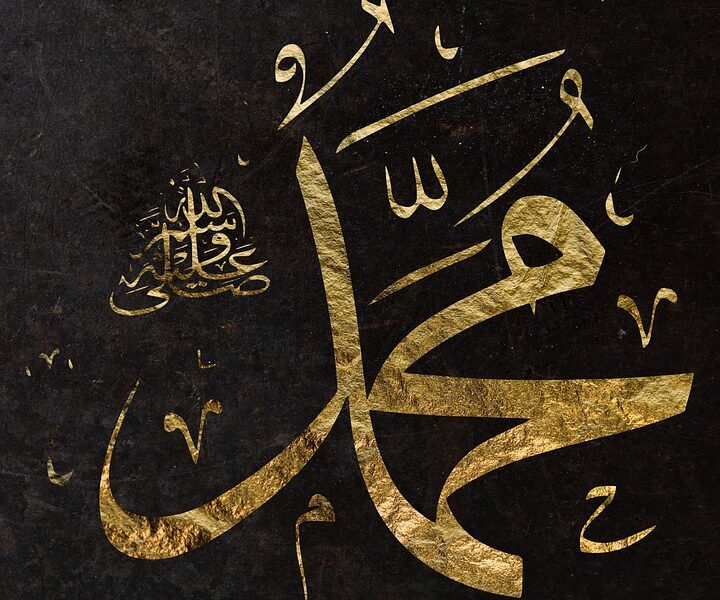 مُحَمَّدُ
صلى الله عليه وسلم